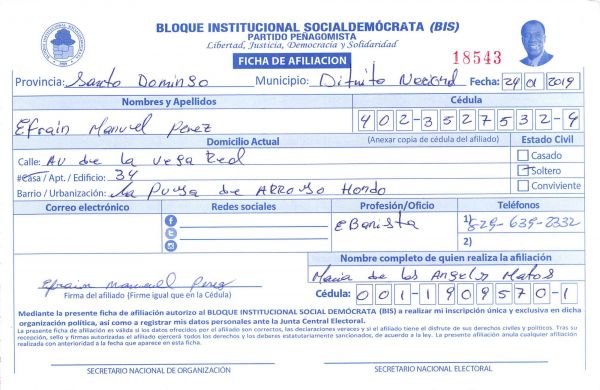 BLOQUE INSTITUCIONAL SOCIALDEMÓCRATA (BIS)
PARTIDO PEÑAGOMISTA
Libertad, Justicia, Democracia y Solidaridad
FICHA DE AFILIACION
18543
Provincia: Santo Domingo Municipio: Ditrito Necional Fecha: 24 01 2019
Nombres y Apellidos Cédula
Efrain Manuel Perez 402-3527532-4
Domicilio Actual (Anexar copia de cédula del afiliado) Estado Civil
Calle: AV de la Vega Real Casado
#casa / Apt. / Edificio: 34 Soltero
Barrio / Urbanización: La Puya de ARROYO Hondo Conviviente
Correo electrónico Redes sociales Profesión/Oficio Teléfonos
EBanista 1) 829-639-2332
2)
Nombre completo de quien realiza la afiliación
Efrain Manuel Perez Maria de los Angeles Matos
Firma del afiliado (Firme igual que en la Cédula) Cédula: 001-1909570-1
Mediante la presente ficha de afiliación autorizo al BLOQUE INSTITUCIONAL SOCIAL DEMÓCRATA (BIS) a realizar mi inscripción única y exclusiva en dicha
organización política, así como a registrar mis datos personales ante la Junta Central Electoral.
La presente ficha de afiliación es valida si los datos ofrecidos por el afiliado son correctos, las declaraciones veraces y si el afiliado tiene el disfrute de sus derechos civiles y políticos. Tras su
recepción, sello y firmas autorizadas el afiliado ejercerá todos los derechos y los deberes estatutariamente sancionados, de acuerdo a la ley. La presente afiliación anula cualquier afiliación
realizada con anterioridad a la fecha que aparece en esta ficha.
SECRETARIO NACIONAL DE ORGANIZACIÓN SECRETARIO NACIONAL ELECTORAL